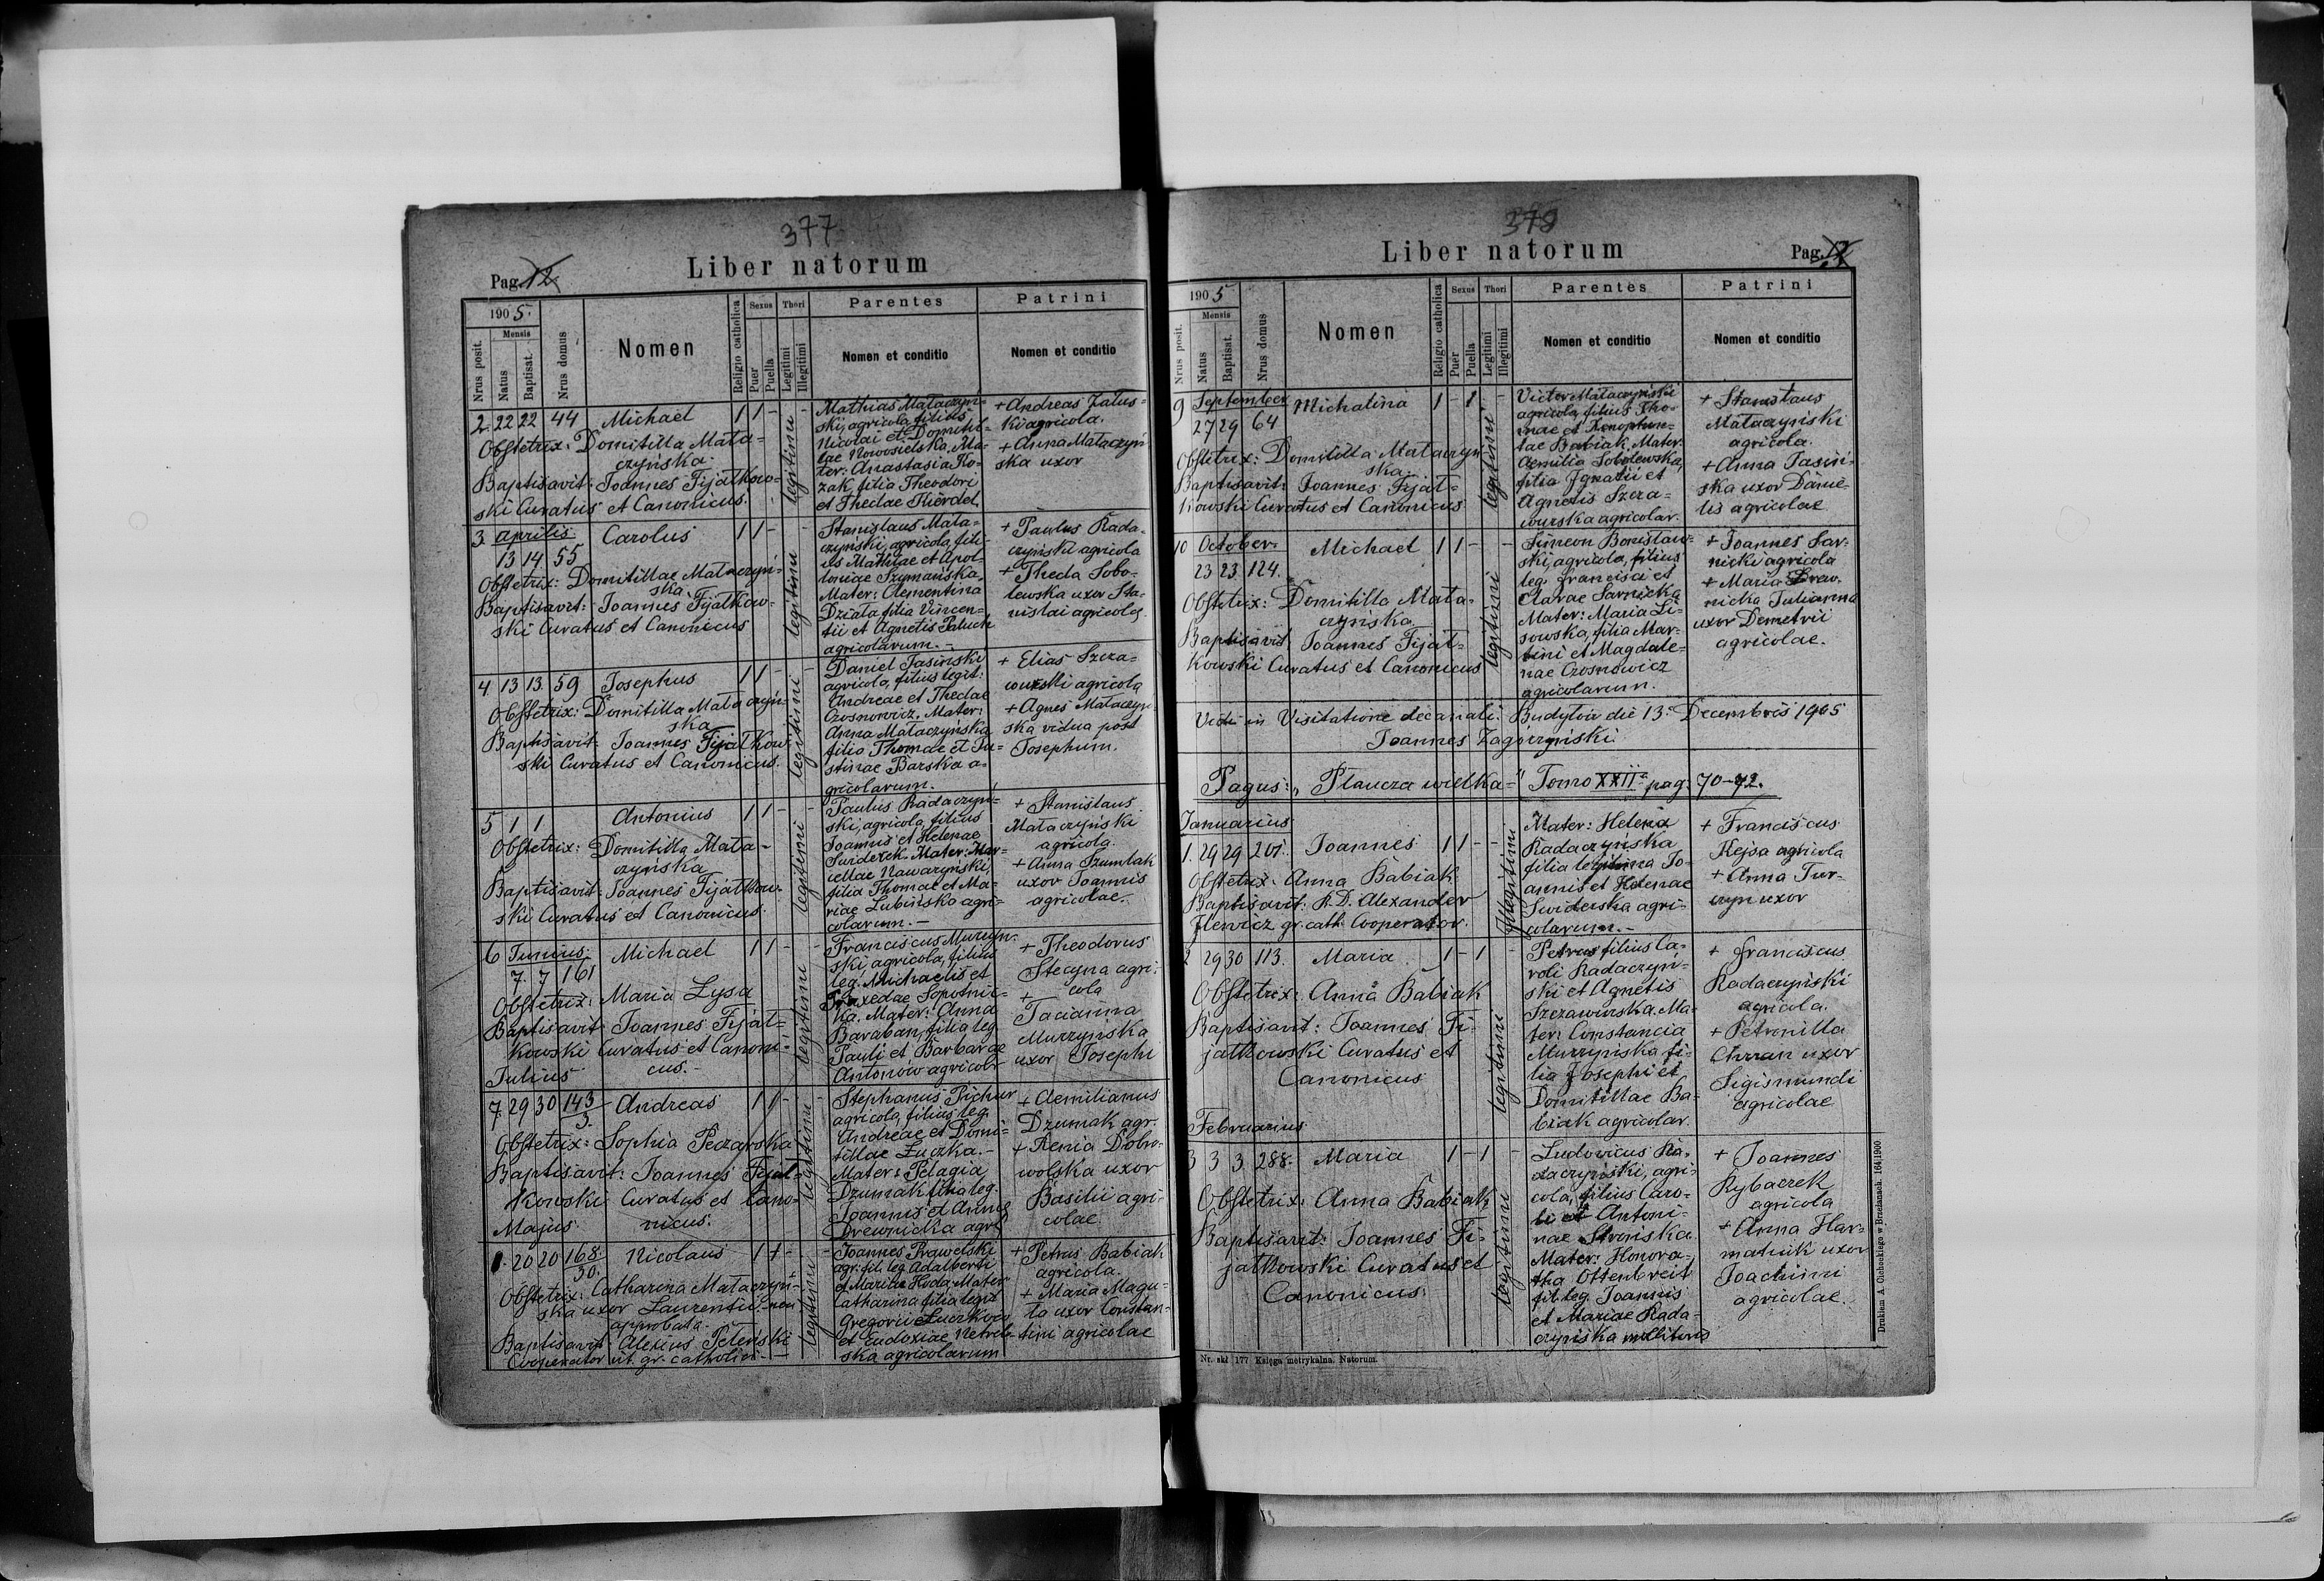 377
Liber natorum
Pag. 12.
1905.
Mensis
Nrus posit.
Natus
Baptisat.
Nrus domus
Nomen
Religio catholica
Sexus
Puer
Puella
Thori
Legitimi
Illegitimi
Parentes
Nomen et conditio
Patrini
Nomen et conditio
2. 22 22 44 Michael 1 1 - -
Obstetrix: Domitilla Mata-
czyńska.
Baptisavit: Joannes Fijałkow-
ski Curatus et Canonicus.
legitimi
Mathias Mataczyń-
ski, agricola, filius
Nicolai et Domitil-
lae Nowosielska, Ma-
ter: Anastasia Ko-
zak filia Theodori
et Theclae Thierdel
+ Andreas Zatus-
ki agricola.
+ Anna Mataczyń
ska uxor
3. Aprilis Carolus 1 1 - -
13 14 55
Obstetrix: Domitillae Mataczyń-
ska
Baptisavit: Joannes Fijałkow-
ski Curatus et Canonicus
legitimi
Stanislaus Mata-
czyński, agricola, fili-
us Mathiae et Apol-
loniae Szymańska,
Mater: Clementina
Działa filia Vincen-
tii et Agnetis Paluch
agricolarum.-
+ Paulus Rada-
czyński agricola
+ Thecla Sobo-
lewska uxor Sta-
nislai agricolae
4 13 13. 59 Josephus 1 1 - -
Obstetrix: Domitilla Mataczyń-
ska
Baptisavit: Joannes Fijałkow-
ski Curatus et Canonicus.
legitimi
Daniel Jasiński
agricola, filius legit:
Andreae et Theclae
Czosnowicz. Mater:
Anna Mataczyńska
filia Thomae et Ju-
stinae Barska a-
gricolarum.
+ Elias Szcza-
wurski agricola
+ Agnes Mataczyń
ska vidua post
Josephum.
5 1 1 Antonius 1 1 - -
Obstetrix: Domitilla Mata-
czyńska
Baptisavit: Joannes Fijałkow-
ski Curatus et Canonicus.
legitimi
Paulus Radaczyń-
ski, agricola, filius
Joannis et Helenae
Swiderek. Mater: Mar-
cellae Nawaryński,
filia Thomae et Ma-
riae Lubińska agri-
colarum.-
+ Stanislaus
Mataczyński
agricola.
+ Anna Szumlak
uxor Joannis
agricolae.
6 Junius. Michael 1 1 - -
7. 7 161
Obstetrix: Maria Lysa
Baptisavit: Joannes Fijał-
kowski Curatus et Canoni-
cus.-
legitimi
Franciscus Murzyń-
ski, agricola, filius
leg. Michaelis et
Praxedae Sopotnic-
ka. Mater: Anna
Baraban, filia leg.
Pauli et Barbarae
Antonow agricolar
+ Theodorus
Stecyna agri-
cola
+ Tacianna
Murzyńska
uxor Josephi
Julius
7. 29 30 143/3. Andreas 1 1 - -
Obstetrix: Sophia Peczarska
Baptisavit: Joannes Fijał-
kowski Curatus et Cano-
nicus.
legitimi
Stephanus Pichur
agricola, filius leg.
Andreae et Domi-
tillae Łuczka.-
Mater: Pelagia
Dzumak filia leg.
Joannis et Annae
Drewnicka agr.
+ Aemilianus
Dzumak agr.
+ Xenia Dobro-
wolska uxor
Basilii agri-
colae.
Majus
8. 20 20 168./30. Nicolaus 1 1 - -
Obstetrix: Catharina Mataczyń-
ska uxor Laurentii,- non
approbata.
Baptisavit: Alexius Peteński
Cooperator rit. gr. catholici.-
legitimi
Joannes Prawelski
agr. fil. leg. Adalberti
et Mariae Hoda, Mater
Catharina filia legit
Gregorii Łuczków
et Eudoxiae Netreb-
ska agricolarum
+ Petrus Babiak
agricola.
+ Maria Magu-
ta uxor Constan-
tini agricolae
378
Liber natorum
Pag.
1905
Mensis
Nrus posit.
Natus
Baptisat.
Nrus domus
Nomen
Religio catholica
Sexus
Puer
Puella
Thori
Legitimi
Illegitimi
Parentes
Nomen et conditio
Patrini
Nomen et conditio
9 September Michalina 1 - 1 - -
27 29 64
Obstetrix: Domitilla Mataczyń
ska.
Baptisavit: Joannes Fijał-
kowski Curatus et Canonicus
legitimi
Victor Mataczyński
agricola, filius Tho-
mae et Xenophon-
tae Babiak, Mater:
Aemilia Sobolewska,
filia Ignatii et
Agnetis Szcza-
wurska agricolar.
+ Stanislaus
Mataczyński
agricola.
+ Anna Jasiń-
ska uxor Danie-
lis agricolae
10 October. Michael 1 1 - -
23 23 124.
Obstetrix: Domitilla Mata-
czyńska
Baptisavit Joannes Fijał-
kowski Curatus et Canonicus
legitimi
Simeon Bonislaw-
ski, agricola, filius
leg. Francisci et
Clarae Sarnicka
Mater: Maria Li-
sowska, filia Mar-
tini et Magdale-
nae Czosnowicz
agricolarum.
+ Joannes Sar-
nicki agricola
+ Maria Drew-
nicka Julianna
uxor Demetrii
agricolae.
Vidi in Visitatione decanali. Budyłów die 13. Decembris 1905
Joannes Zagórzyński.
Pagus: „Płaucza wielka" Tomo XXII pag: 70-72.
Januarius
1. 29 29 201. Joannes 1 1 - -
Obstetrix: Anna Babiak
Baptisavit: R. D. Alexander
Ilewicz gr. cath. Cooperator.
Illegitimi
Mater: Helena
Radaczyńska
filia legitima Jo-
annis et Helenae
Swiderska agri-
colarum.-
+ Franciscus
Rejsa agricola
+ Anna Tur-
czyn uxor
2 29 30 113. Maria 1 - 1 -
Obstetrix: Anna Babiak
Baptisavit: Joannes Fi-
jałkowski Curatus et
Canonicus
legitimi
Petrus filius Ca-
roli Radaczyń-
ski et Agnetis
Szczawurska. Ma-
ter: Constancia
Murzyńska fi-
lia Josephi et
Domitillae Ba-
biak agricolar.
+ Franciscus
Radaczyński
agricola.
+ Petronilla
Chrzan uxor
Sigismundi
agricolae
Februarius
3 3 3 288. Maria 1 - 1 -
Obstetrix: Anna Babiak
Baptisavit: Joannes Fi-
jałkowski Curatus et
Canonicus.
legitimi
Ludovicus Ra-
daczyński, agri-
cola, filius Caro-
li et Antoni-
nae Strońska.
Mater: Honora-
tha Ottenbreit
fil. leg. Joannis
et Mariae Rada-
czyńska molitoris
+ Joannes
Rybaczek
agricola
+ Anna Har-
matiuk uxor
Joachimi
agricolae.
Nr. skł. 177 Księga metrykalna. Natorum.
Drukiem A. Cichockiego w Brzeżanach. 164/1900